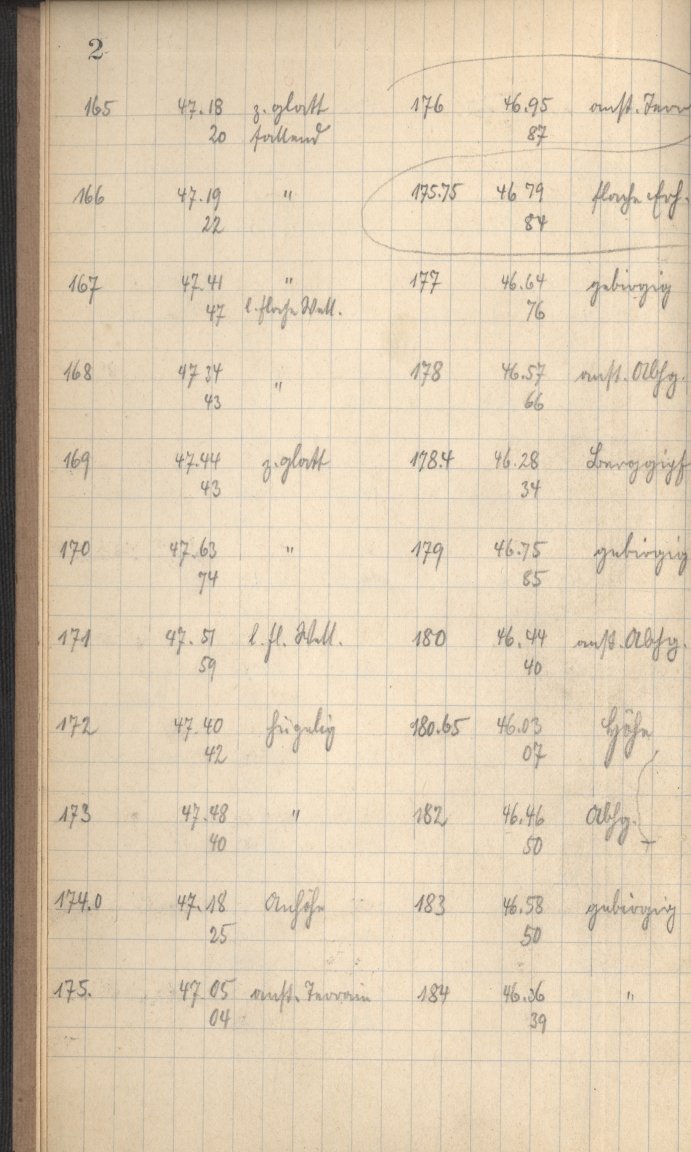 2
165 47.18 z. glatt
20 fallend
166 47.19 "
22
167 47.41 "
47 l. flache Well.
168 47 34 "
43
169 47.44 z. glatt
43
170 47.63 "
74
171 47.51 l. fl. Well.
59
172 47.40 hügelig
42
173 47.48 "
40
174.0 47.18 Anhöhe
25
175. 47 05 anst. Terrain
04
176 46.95 anst. Terr
87
175.75 46 79 flache Erh.
84
177 46.64 gebirgig
76
178 46.57 anst. Abhg.
66
178.4 46.28 Berggipf
34
179 46.75 gebirgig
85
180 46.44 anst. Abhg.
40
180.65 46.03 Höhe
07
182 46.46 Abhg.
50
183 46.58 gebirgig
50
184 46.36 "
39